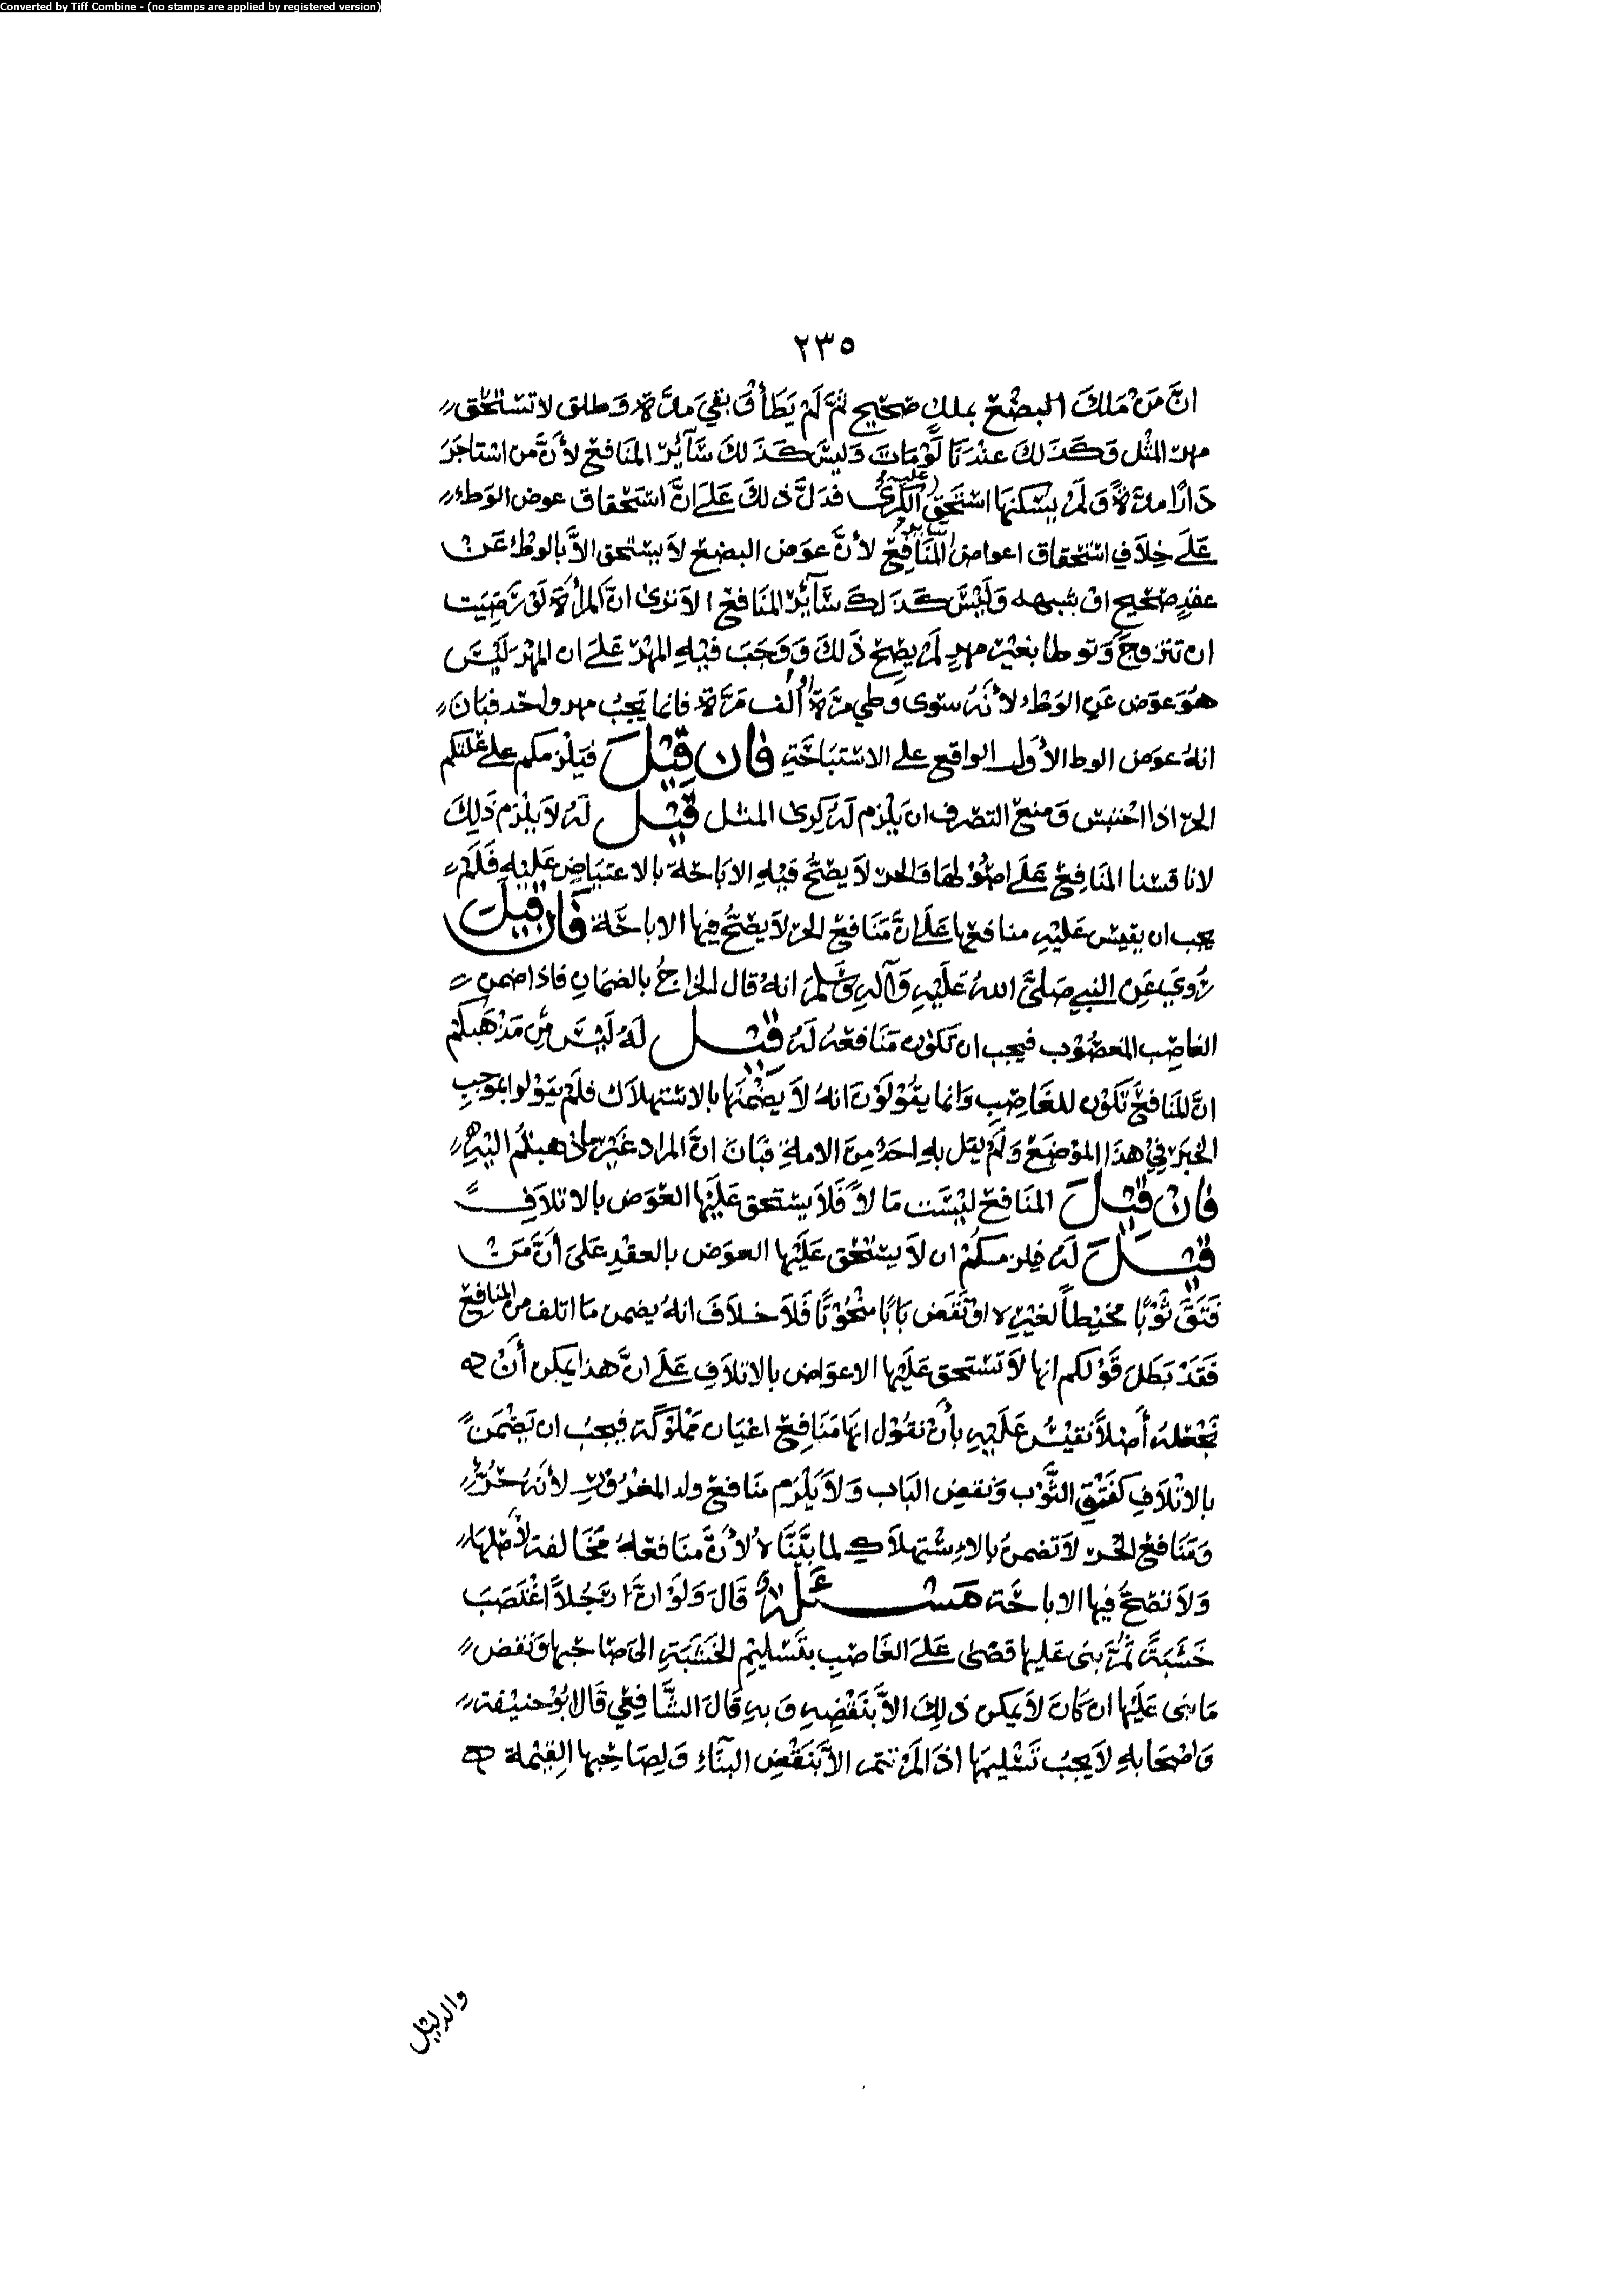 Converted by Tiff Combine - (no stamps are applied by registered version)
٢٣٥
انَّ مَنْ مَلَكَ البضْعَ بملكٍ صَحيْحٍ ثمَّ لَمْ يَطَأ وَبقيَ مدَّة وَطلق لا تسْتحق
مهرَ المثْل وَكَذَلكَ عندَنَا لَوْمَاتَ وَليسَ كَذَلكَ سَآئِر المنَافِع لأنَّ مَن اسْتاجَرَ
دَارًا مدَّةً وَلَمْ يسْكنهَا اسْتَحَقَّ عليه الكَرَى فدَلَّ ذلكَ عَلَى انَّ اسْتحْقاق عوض الوَطء
عَلَى خلَافِ اسْتحْقاق اعواض سَائر المنَافِع لأنَّ عوَض البضع لاَ يسْتحق الاَّ بالوطء عَنْ
عقدٍ صَحيْحٍ اوْ شبهه وَلَيْسَ كَذَلكَ سَآئِر المنَافع الاَ ترى انَّ المرْأَةَ لَوْ رَضِيَت
ان تتزوجَ وَتوطا بغيْر مهرٍ لَمْ يصحّ ذَلكَ وَوَجَبَ فيْهِ المهْر عَلَى ان المهْرَ لَيْسَ
هُوَ عوَض عَنِ الوَطْء لأنَّهُ سَوى وطي مرَّة اوْ ألف مَرَّة فانما يَجبُ مهر واحد فبَان
انهُ عوَض الوطا الأوَّل الواقع على الاسْتبَاحَةِ فَان قِيْلَ فيَلْزمكم على علتكم
الحرّ اذا احْتبسَ وَمنعَ التصَرف ان يَلْزم لَهُ كرى المثل قيْل لَهُ لاَ يلْزم ذَلِكَ
لانا قسْنا المنَافِع عَلَى اصُوْلهَا وَالحرّ لاَ يصَحُّ فيْهِ الابَاحَة بالاعتيَاضِ عَليْهِ فَلَمْ
يجب ان يقيس عَليْهِ منافعها عَلَى انَّ مَنَافع الحرّ لاَ يصَحُّ فيها الاباحَة فَان قيْلَ
رُويَ عَنِ النبي صَلَّى اللهُ عَلَيْهِ وَآلهِ وَسَلَّمَ انهُ قال الخرَاجُ بالضمَانِ فاذا ضمن
الغاصِب المغصُوْب فيَجب ان تكوْن مَنَافعهُ لَهُ قيْل لَهُ لَيْسَ مِنْ مَذْهَبكمْ
انَّ المنَافعَ تَكُوْن للغَاصِبِ وَانما يقُوْلوْنَ انهُ لاَ يضْمنهَا بالاسْتهلاَك فلَمْ يَقوْلوا بموْجبِ
الخبَر فيْ هذَا الموْضِع وَلَمْ يقل بهِ احَدٌ مِنَ الامةِ فبَانَ انَّ المرَاد غيْر ما ذهبتُم اليْهِ
فان قيْلَ المنَافع ليْسَت مَالاً فَلاَ يسْتحق عَلَيْها العوَض بالاتلاَفِ
قيْلَ لَهُ فيلزمكُمْ ان لاَ يسْتحق عَلَيْها العوَض بالعقْدِ عَلى أنَّ مَنْ
فَتقَ ثَوْبًا مخيْطاً لغيْرِه اوْ نَقَض بَابًا منْحُوْتًا فَلاَ خلاَفَ انهُ يضمن مَا اتلف من المنَافِع
فَقَدْ بَطلَ قَوْلكم انها لاَ تَسْتحق عَلَيْها الاعوَاض بالاتلاَفِ عَلَى انَّ هذا يمكن أَنْ
نَجْعَلهُ أَصْلاً نقيْسُ عَلَيْهِ بأنْ نقُوْل انهَا مَنَافِع اعْيَان ممْلُوْكَة فيجبُ ان تَضْمَن
بالاتْلاَفِ كفَتْقِ الثَّوْب وَنقض البَاب وَلاَ يَلْزم منَافع ولد المغْرُوْرِ لأنَّهُ حُرٌّ
وَمَنَافع الحرّ لاَ تَضمن بالاسْتهلاَكِ لما بَيَّنَّاهُ لأنَّ مَنَافعَهُ مخَالفة لأصْلهَا
وَلاَ تصَحُّ فيها الاباحَة مَسْئَلَةٌ قَالَ وَلَوْ انَّ رَجُلاً اغْتصَبَ
خَشَبَةً ثُمَّ بَنى عَليها قضَى عَلَى الغَاصِبِ بتَسْليْمِ الخشَبَةِ الى صَاحبها وَنقض
مَا بنى عَلَيْها ان كَانَ لاَ يمكن ذَلِكَ الاَّ بنَقْضِهِ وَبهِ قَالَ الشَّافِعيْ قَالَ ابُوْ حَنيْفة
وَاصْحَابه لاَ يَجبُ تَسْليمهَا اذَا لَمْ تتم الاَّ بنَقْض البنَاءِ وَلِصَاحِبها القيْمة
والدليْل